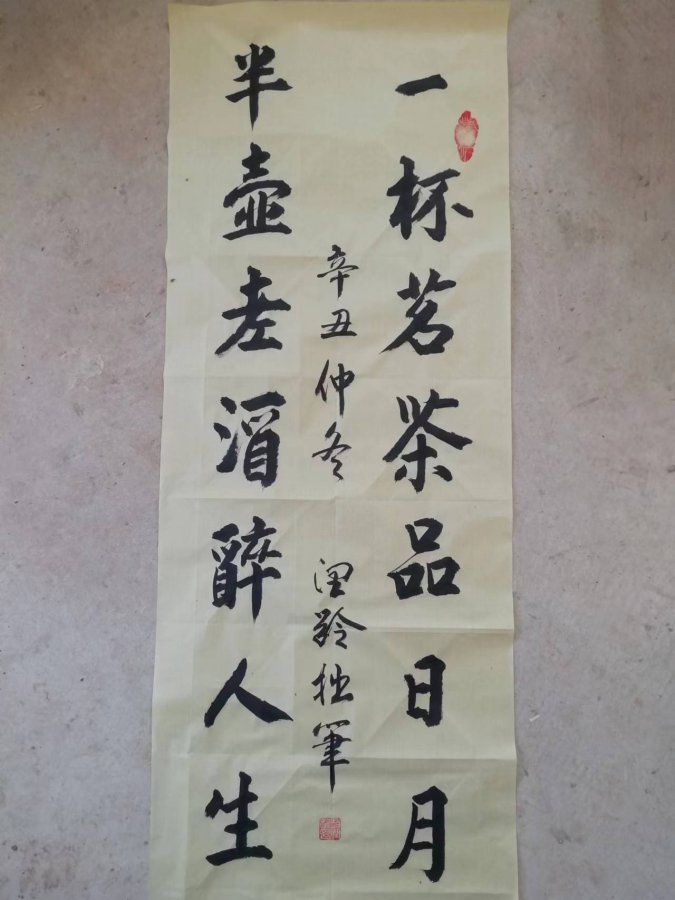 一杯茗茶品日月
半壶老酒醉人生
辛丑仲冬
拙笔